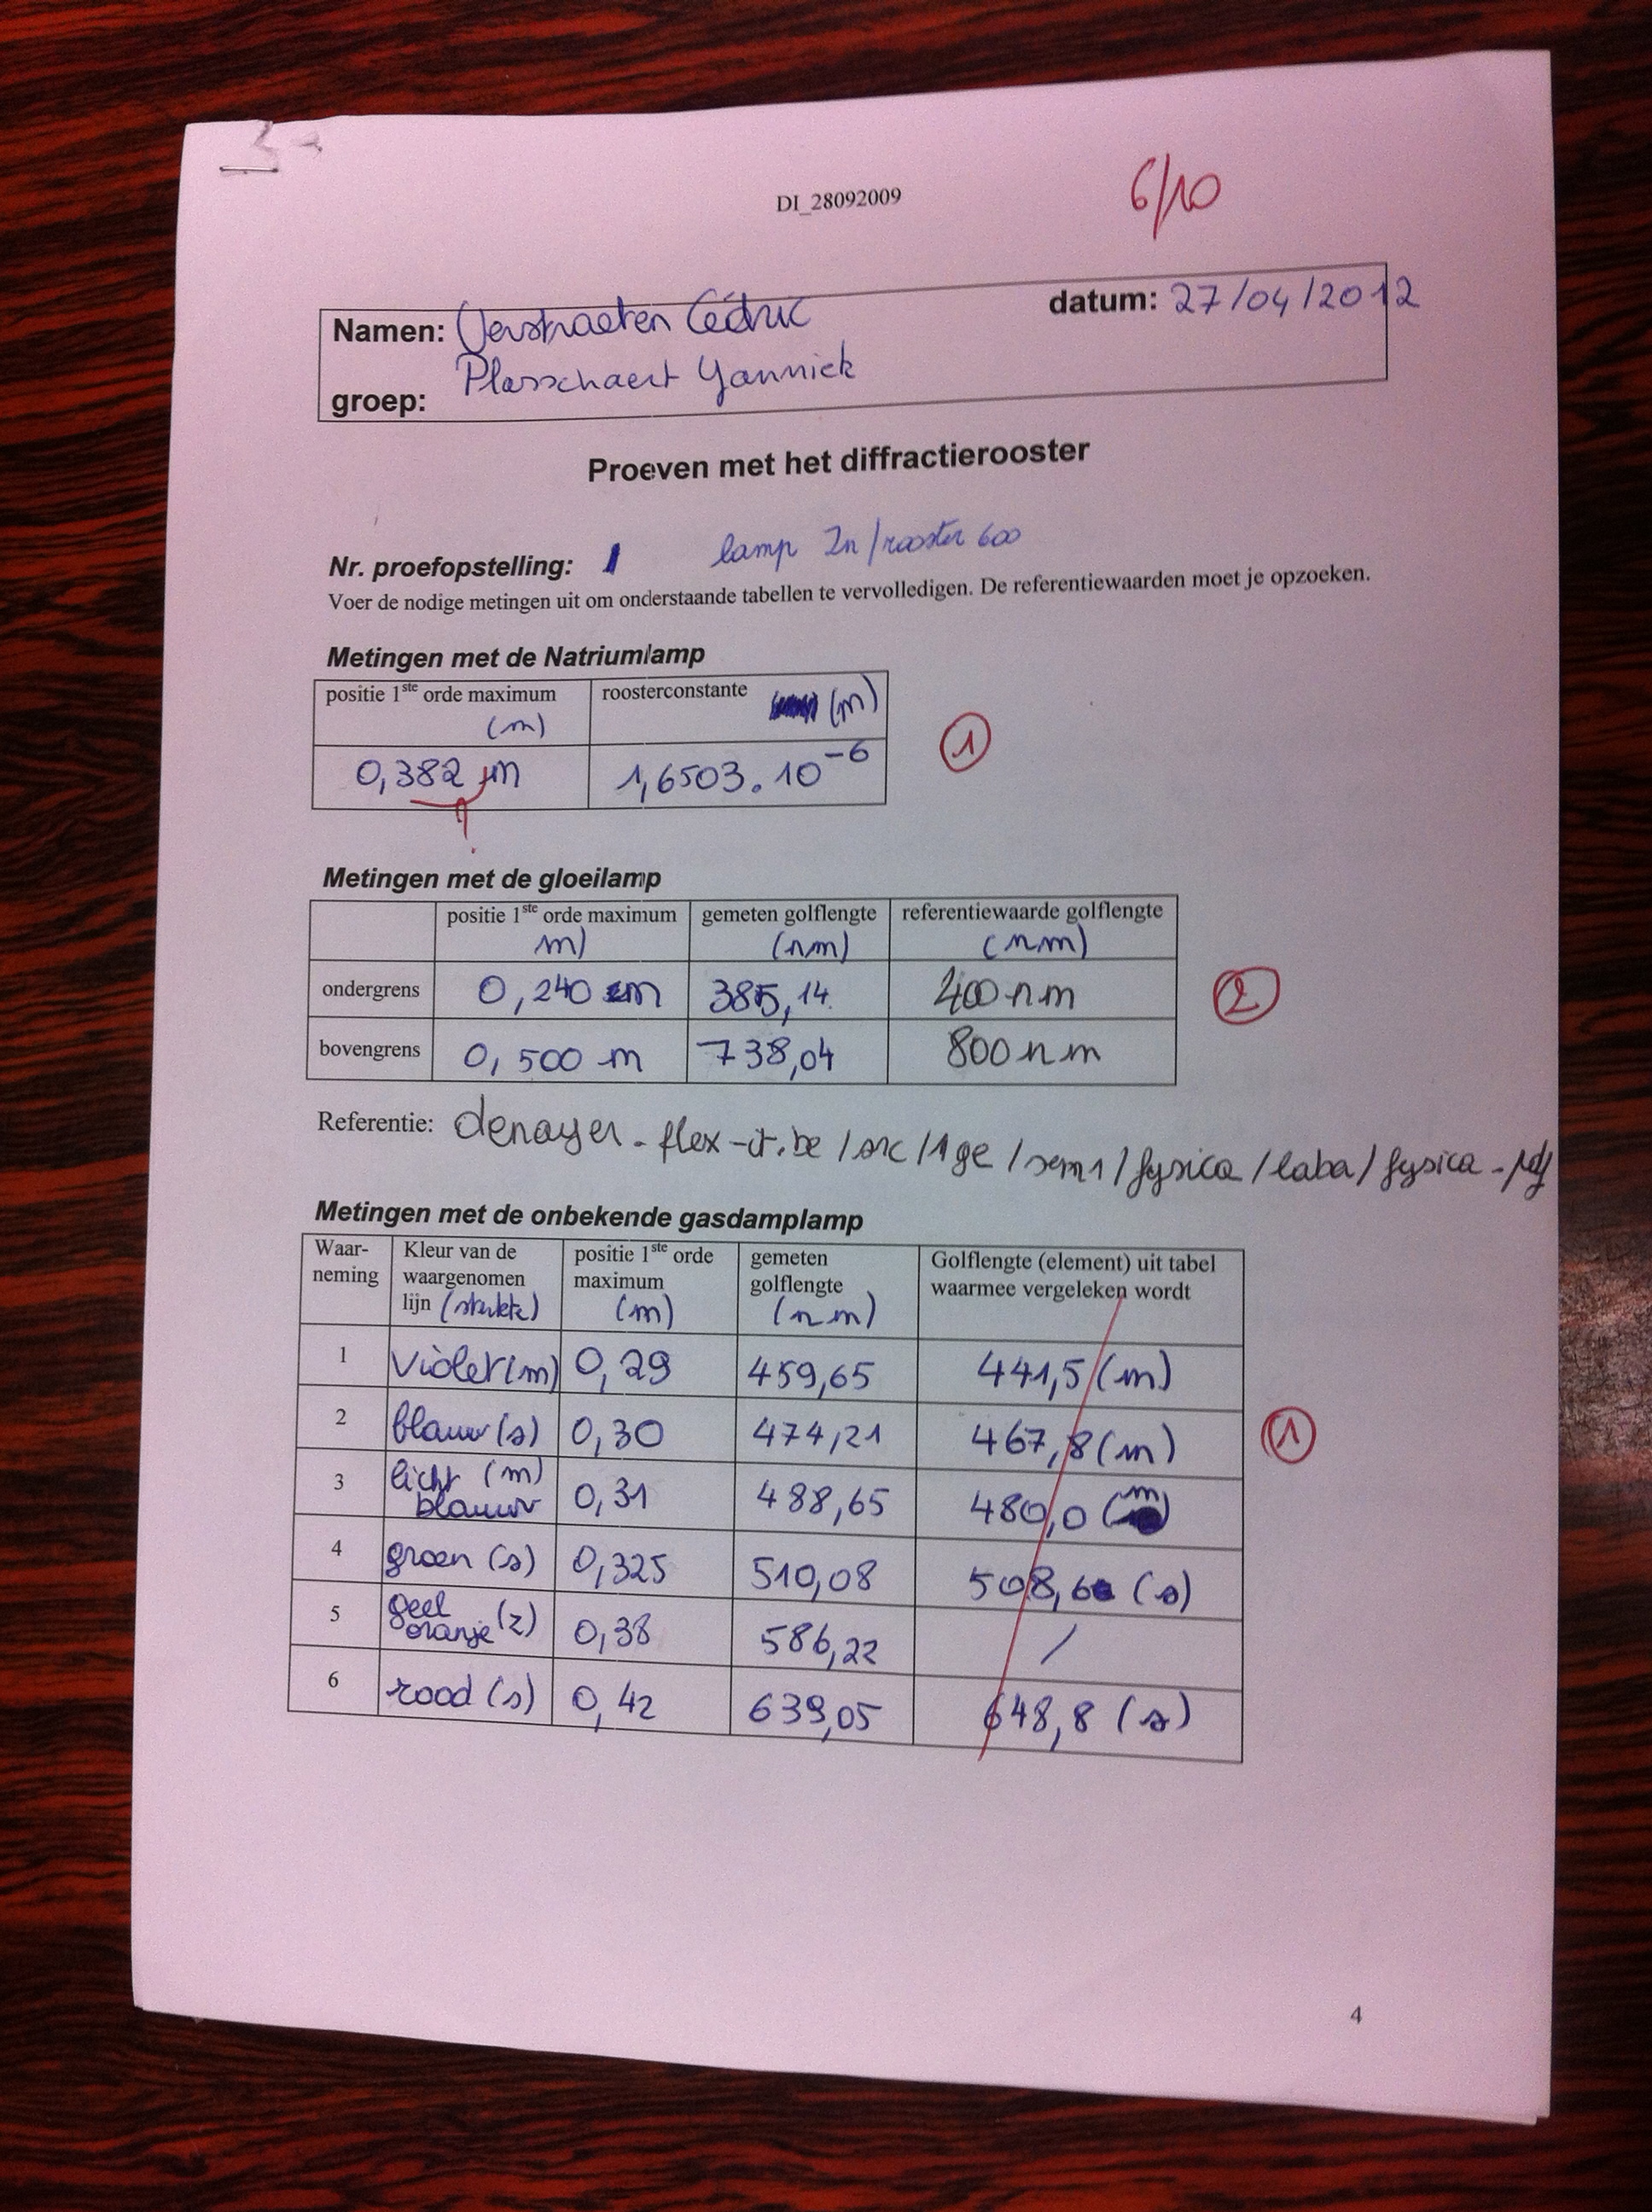 DI_28092009
6/10
Namen: Verstraeten Cédric
datum: 27/04/2012
Plasschaert Yannick
groep:
Proeven met het diffractierooster
Nr. proefopstelling: 1 lamp Zn/rooster 600
Voer de nodige metingen uit om onderstaande tabellen te vervolledigen. De referentiewaarden moet je opzoeken.
Metingen met de Natriumlamp
positie 1ste orde maximum (m)
roosterconstante (m)
0,382 m
1,6503.10-6
1
Metingen met de gloeilamp
positie 1ste orde maximum m)
gemeten golflengte (nm)
referentiewaarde golflengte (nm)
ondergrens 0,240 m 385,14 400nm
2
bovengrens 0,500 m 738,04 800nm
Referentie: denayer-flex-it.be/src/1ge/sem1/fysica/labo/fysica-.pdf
Metingen met de onbekende gasdamplamp
Waar-neming
Kleur van de waargenomen lijn (sterkte)
positie 1ste orde maximum (m)
gemeten golflengte (nm)
Golflengte (element) uit tabel waarmee vergeleken wordt
1 Violet(m) 0,29 459,65 441,5 (m)
2 blauw (s) 0,30 474,21 467,8 (m)
1
3 licht (m) blauw 0,31 488,65 480,0 (m)
4 groen (s) 0,325 510,08 508,6 (s)
5 geel oranje (z) 0,38 586,22 /
6 rood (s) 0,42 639,05 648,8 (s)
4